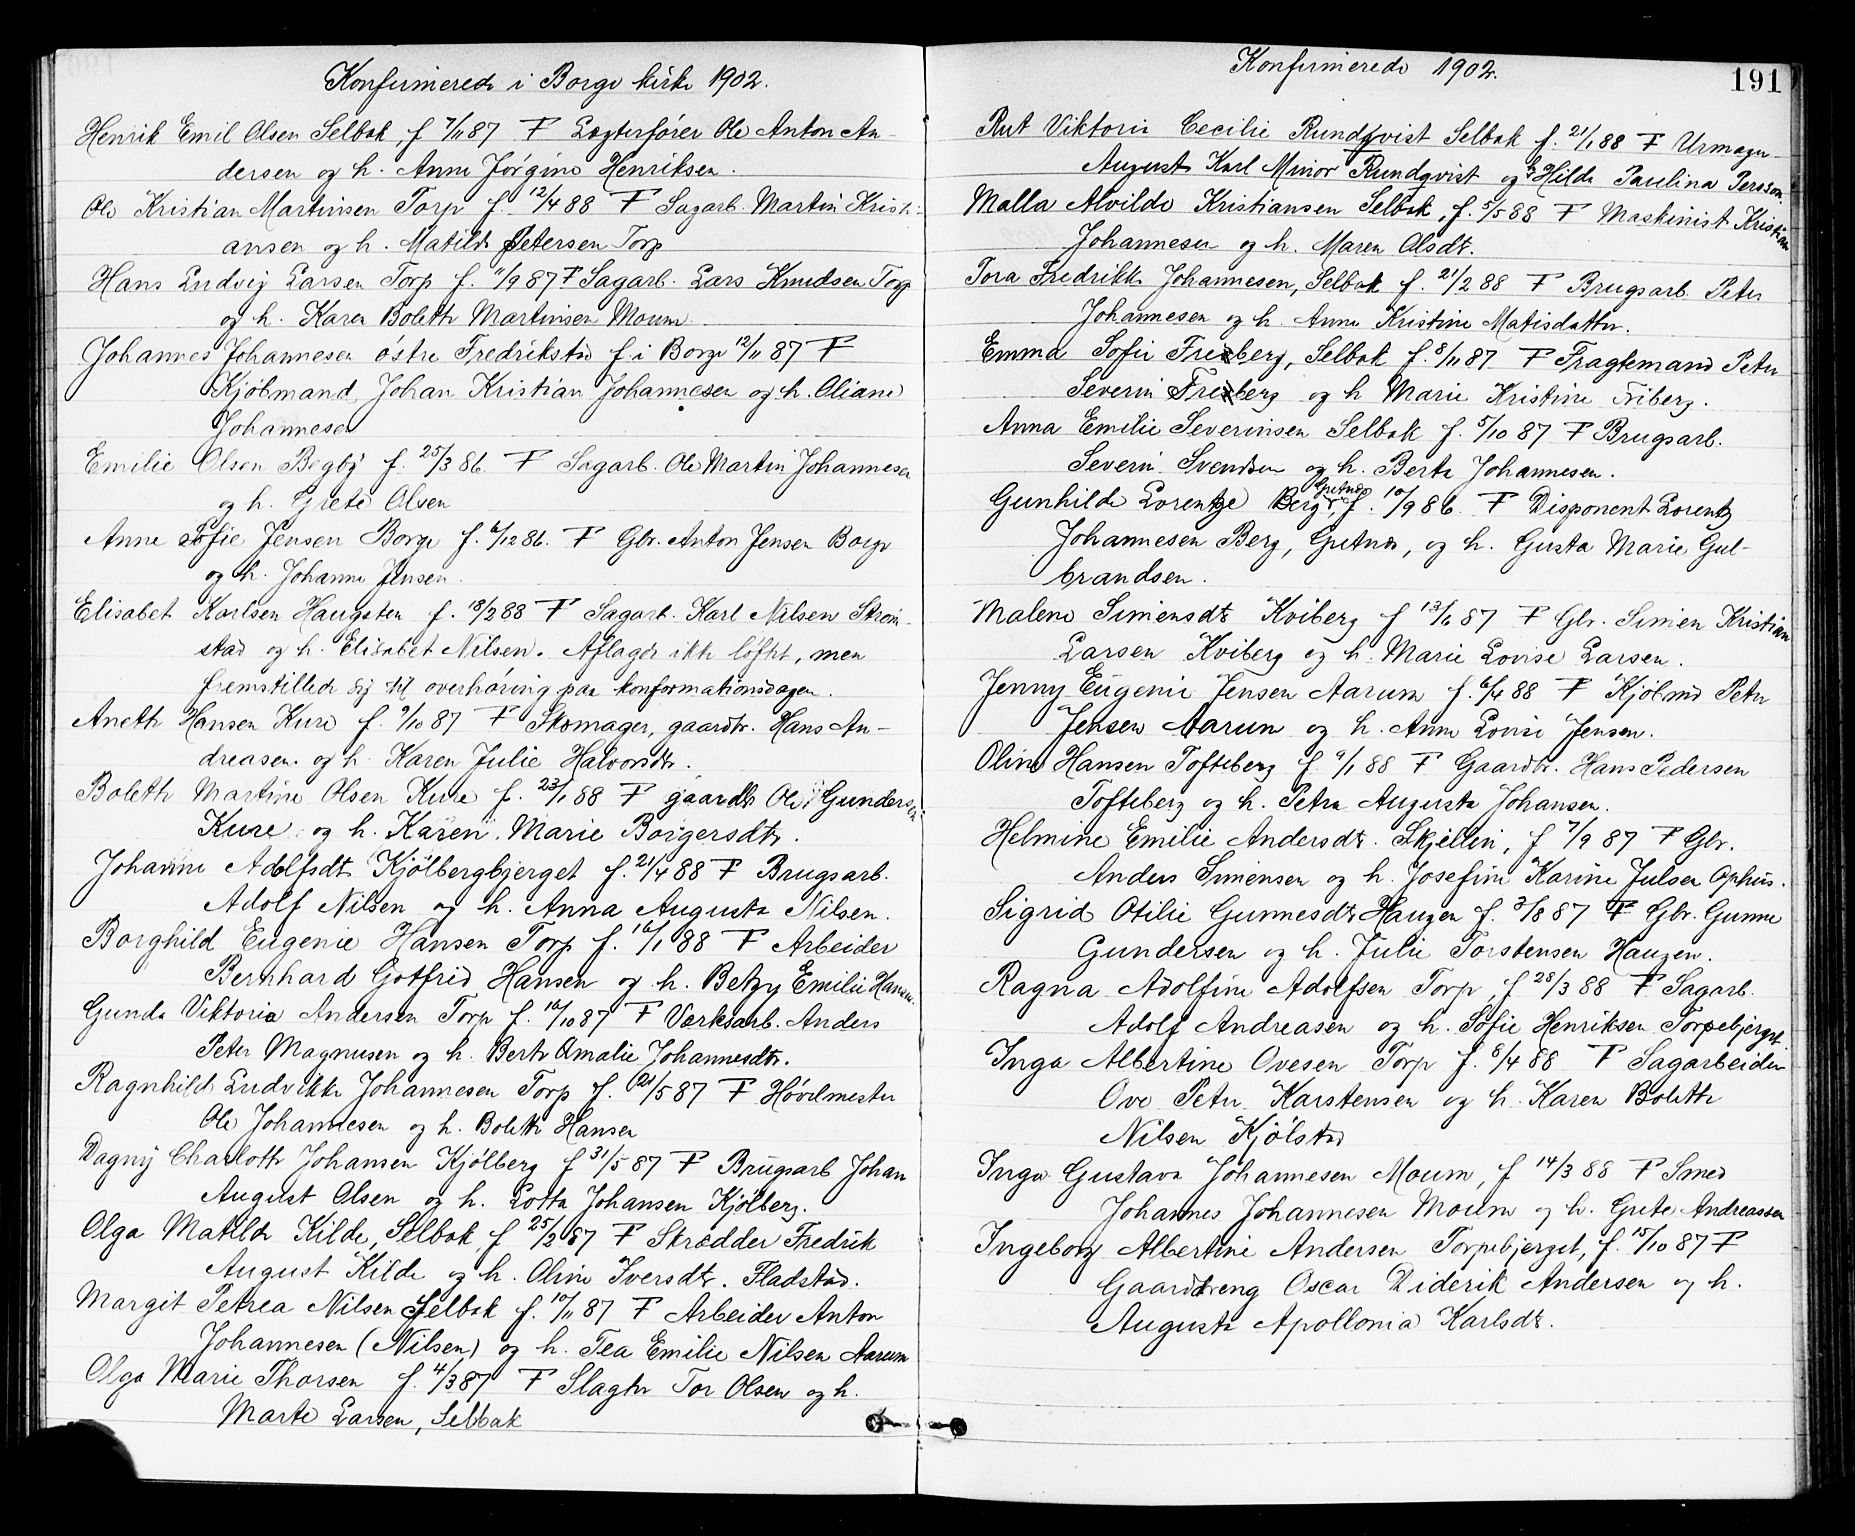 Konfirmerede i Borge kirke 1902.
Henrik Emil Olsen Selbak, f 7/11 87 F Lægterfører Ole Anton An-
dersen og h. Anne Jørgine Henriksen.
Ole Kristian Martinsen Torp f. 12/4 88 F Sagarb. Martin Kristi-
ansen og h. Matilde Petersen Torp
Hans Ludvig Larsen Torp f. 11/9 87 F Sagarb. Lars Knudsen Torp
og h. Karen Bolette Martinsen Moum
Johannes Johannesen østre Fredrikstad f i Borge 12/11 87 F
Kjøbmand Johan Kristian Johannesen og h. Oliane
Johannesen
Emilie Olsen Begby f. 25/3 86. F Sagarb. Ole Martin Johannesen
og h. Grete Olsen
Anne Sofie Jensen Borge f. 6/12 86. F Gbr. Anton Jensen Borge
og h. Johanne Jensen.
Elisabet Karlsen Haugsten f. 18/2 88 F Sagarb. Karl Nilsen Strøm-
stad og h. Elisabet Nilsen. Aflagde ikke løftet, men
fremstillede sig til overhøring paa konformationsdagen.
Anethe Hansen Kure f. 9/10 87 F Skomager, gaardbr. Hans An-
dreasen og h. Karen Julie Halvorsdtr.
Bolette Martine Olsen Kure f. 23/1 88 F gaardbr Ole Gundersen
Kure og h. Karen Marie Borgersdtr.
Johanne Adolfsdtr Kjølbergbjerget f. 21/4 88 F Brugsarb.
Adolf Nilsen og h. Anna Augusta Nilsen.
Borghild Eugenie Hansen Torp f. 16/1 88 F Arbeider
Bernhard Gotfrid Hansen og h. Betzy Emilie Hansen.
Gunda Viktoria Andersen Torp f. 10/10 87 F Værksarb. Anders
Peter Magnusen og h. Berte Amalie Johannesdtr.
Ragnhild Ludvikke Johannesen Torp f. 21/5 87 F Høvelmester
Ole Johannesen og h. Bolette Hansen
Dagny Charlotte Johansen Kjølberg f 31/5 87 F Brugsarb Johan
August Olsen og h. Lotta Johansen Kjølberg.
Olga Matilde Kilde, Selbak f 25/2 87 F Skrædder Fredrik
August Kilde og h. Oline Iversdtr. Fladstad.
Margit Petrea Nilsen Selbak f. 10/11 87 F Arbeider Anton
Johannesen (Nilsen) og h. Tea Emilie Nilsen Aarum
Olga Marie Thorsen f. 4/3 87 F Slagter Tor Olsen og h.
Marte Larsen, Selbak
Konfirmerede 1902.
191
Rut Viktoria Cecilie Rundqvist Selbak f. 21/1 88 F Urmager
August Karl Minor Rundqvist og h. Hilda Paulina Persson.
Malla Alvilde Kristiansen Selbak, f. 5/5 88 F Maskinist Kristian
Johannesen og h. Maren Olsdtr.
Tora Fredrikke Johannesen, Selbak f. 21/2 88 F Brugsarb. Peter
Johannesen og h. Anne Kristine Matisdatter.
Emma Sofie Freiberg, Selbak f. 8/11 87 F Fragtemand Peter
Severin Freiberg og h Marie Kristine Friberg.
Anna Emilie Severinsen Selbak f. 5/10 87 F Brugsarb.
Severin Svendsen og h. Berte Johannesen.
Gunhilde Lorentze Berg, Gretnæs, f. 10/9 86. F Disponent Lorentz
Johannesen Berg, Gretnæs, og h. Gusta Marie Gul-
brandsen.
Malene Simensdtr Kviberg f 13/6 87 F Gbr. Simen Kristian
Larsen Kviberg og h. Marie Lovise Larsen.
Jenny Eugenie Jensen Aarum f. 6/4 88 F Kjøbmd Peter
Jensen Aarum og h. Anne Lovise Jensen.
Oline Hansen Tofteberg f. 9/1 88 F Gaardbr. Hans Pedersen
Tofteberg og h. Petra Augusta Johansen.
Helmine Emilie Andersdtr. Skjellin, f 7/9 87 F Gbr.
Anders Simensen og h. Josefine Karine Julsen Ophus.
Sigrid Otilie Gunnesdtr Haugen f. 3/8 87 F Gbr. Gunne
Gundersen og h. Julie Torstensen Haugen.
Ragna Adolfine Adolfsen Torp, f 28/3 88 F Sagarb.
Adolf Andreasen og h. Sofie Henriksen Torpebjerget.
Inga Albertine Ovesen Torp f. 8/4 88 F Sagarbeider
Ove Peter Karstensen og h. Karen Bolette
Nilsen Kjølstad
Inga Gustava Johannesen Moum, f 14/3 88 F Smed
Johannes Johannesen Moum og h. Grete Andreassen
Ingeborg Albertine Andersen Torpebjerget, f. 15/10 87 F
Gaarddreng Oscar Diderik Andersen og h.
Augusta Apollonia Karlsdtr.